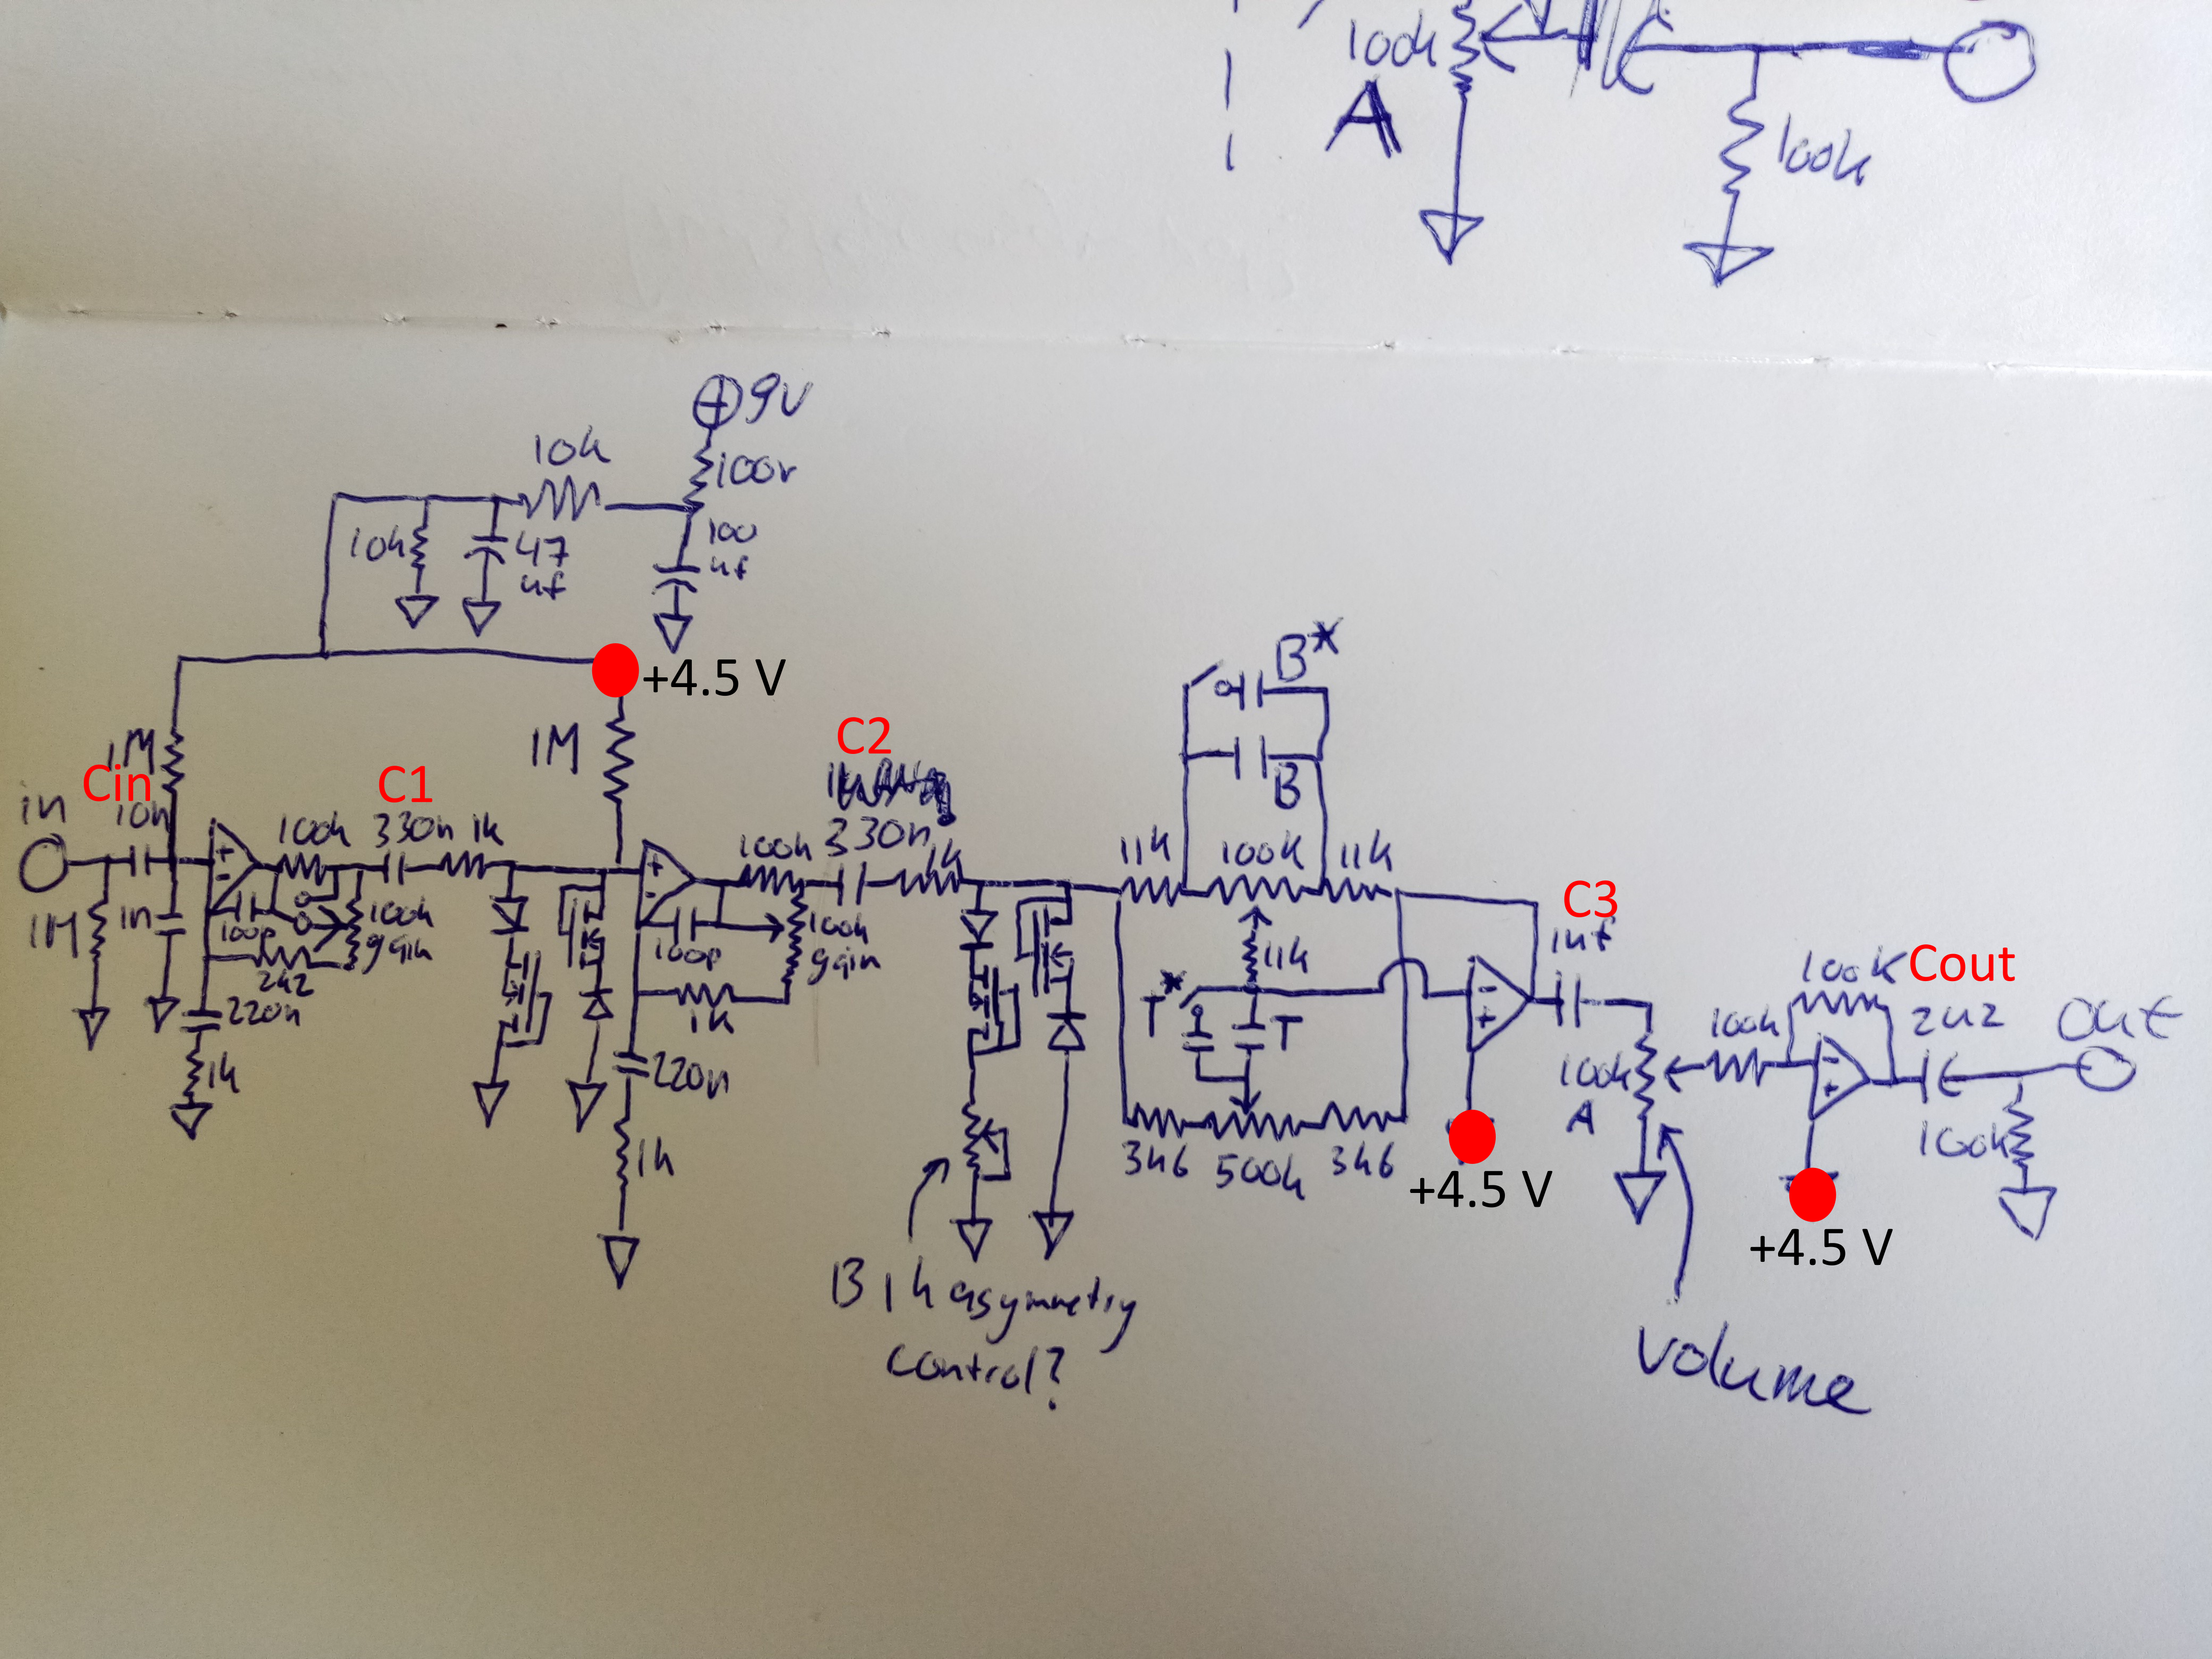 100k
A
100k
+ 9V
10k
100r
10k
47
uf
100
uf
+4.5 V
1M
1M
Cin
in
10n
C1
100k 330n 1k
C2
330n
100k
1k
B*
B
11k 100K 11k
C3
1uf
1M
1n
100p
100k
gain
2k2
220n
1k
100p
100k
gain
1k
220n
1k
11k
T*
T
3k6 500k 3k6
+4.5 V
100k
A
100k
100K
Cout
2u2
out
100k
+4.5 V
B 1k asymmetry
control?
Volume